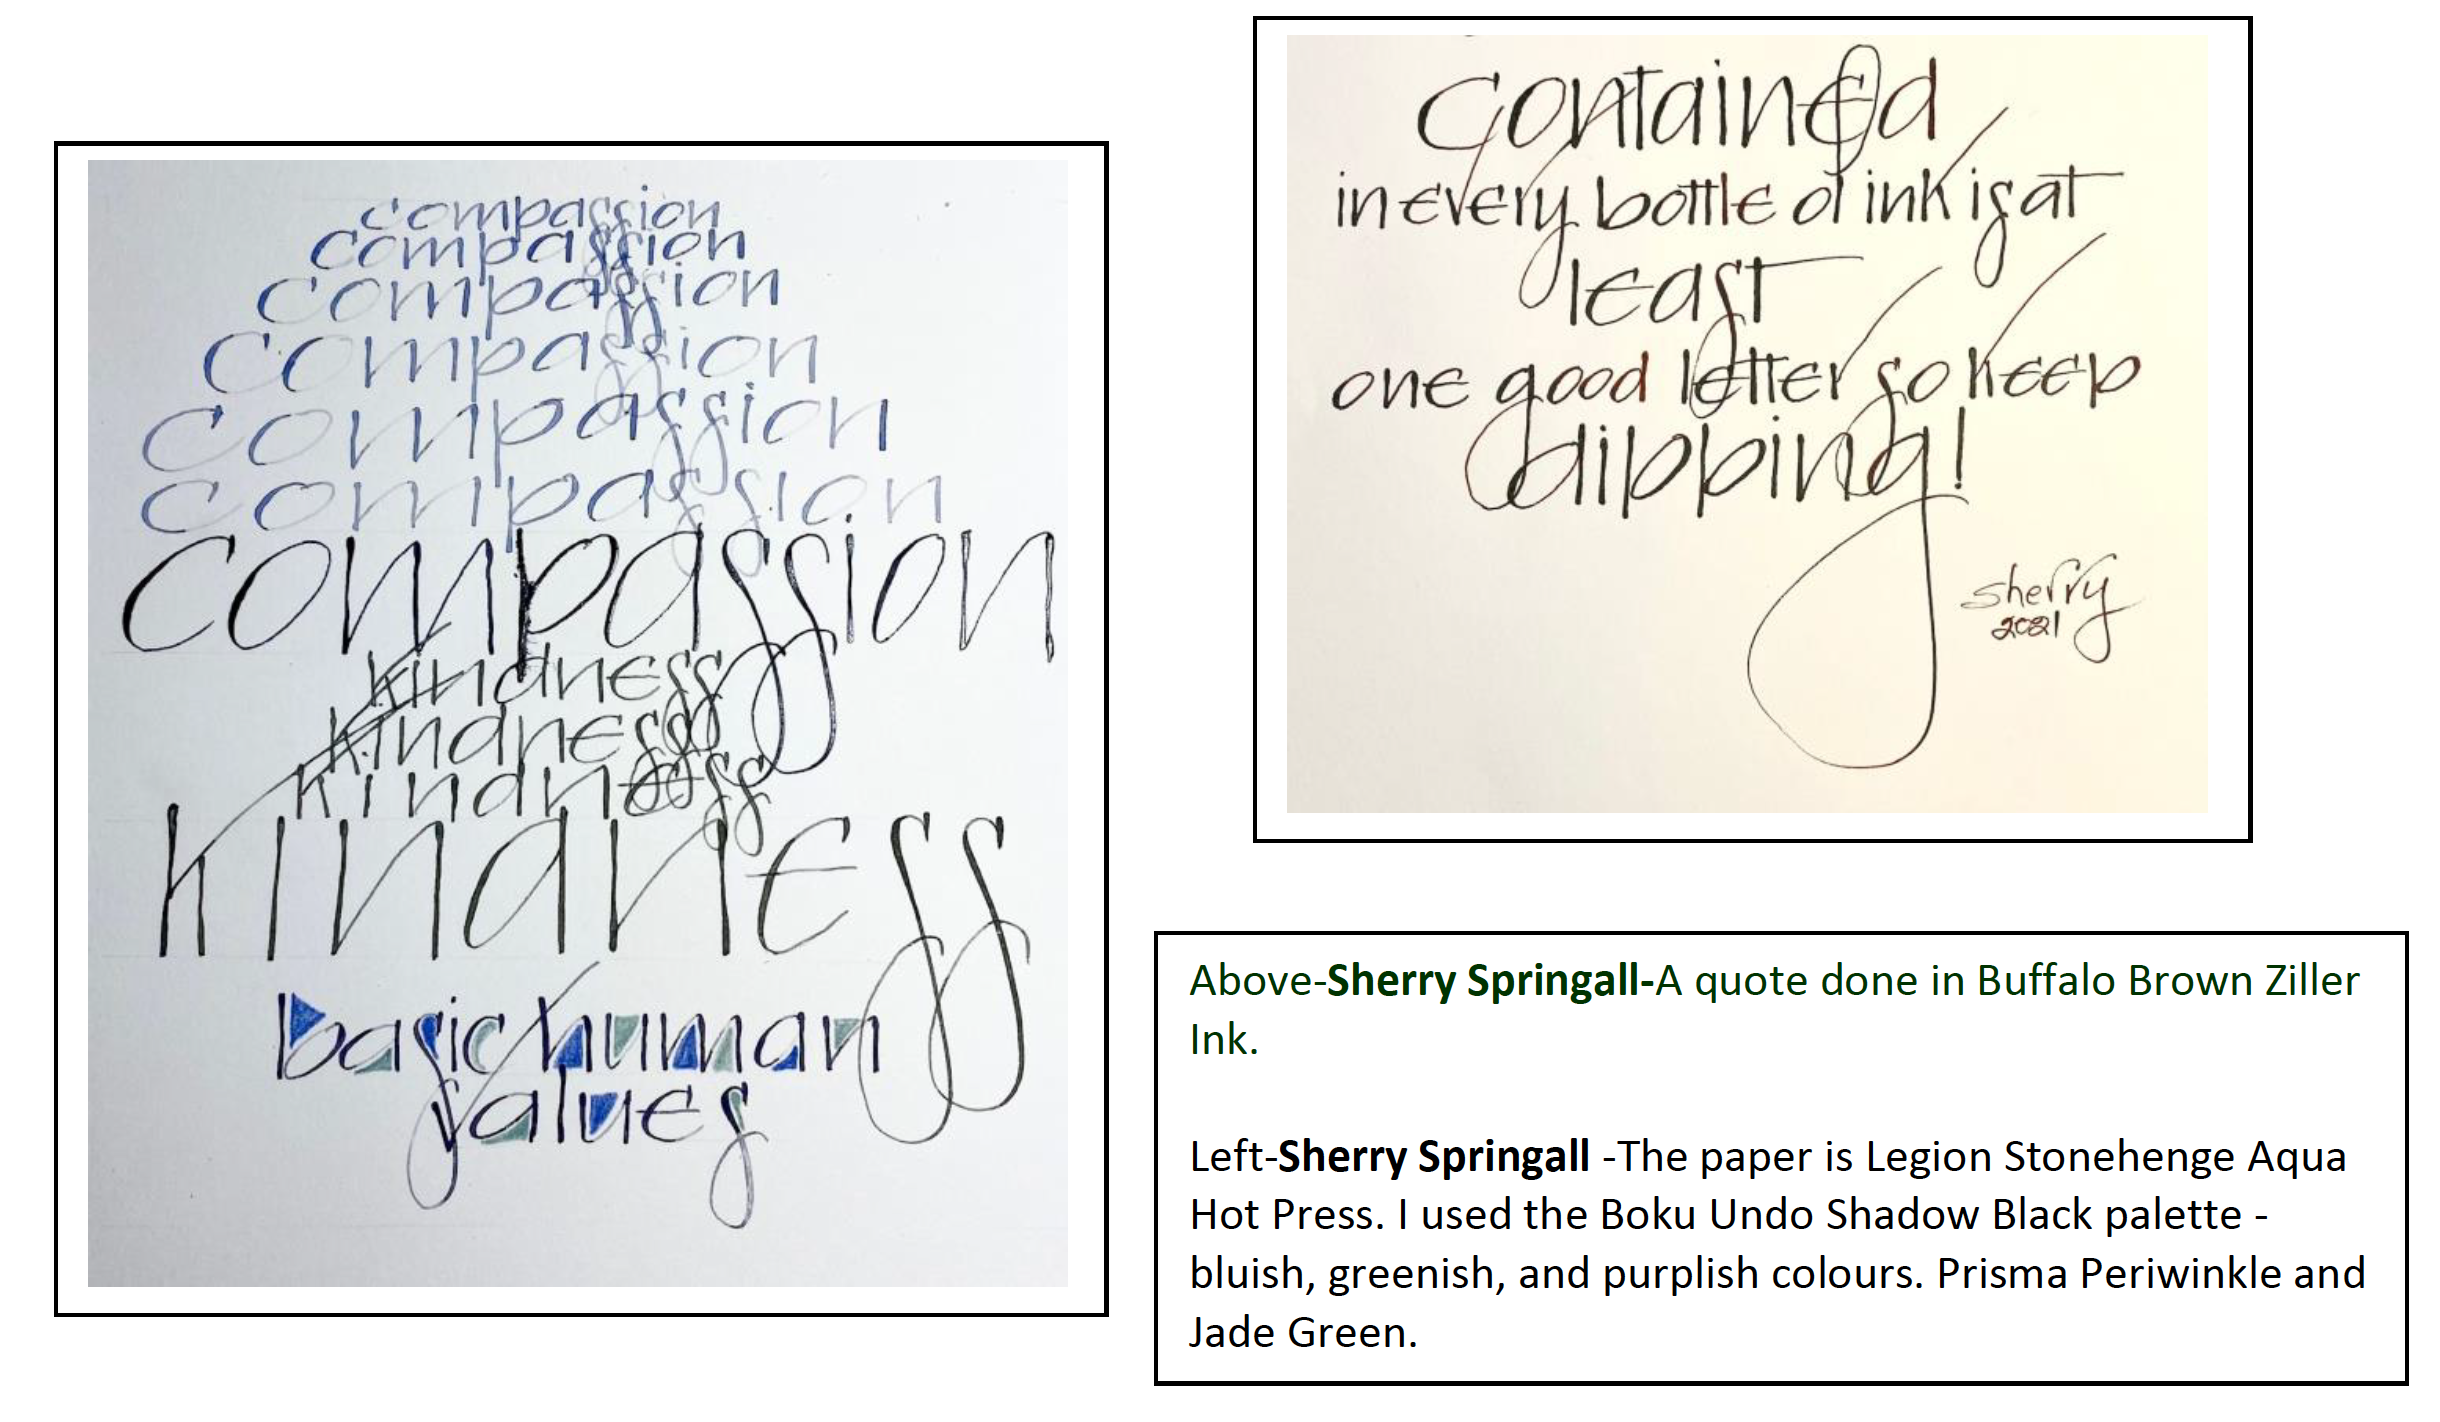 compassion
compassion
compassion
compassion
compassion
compassion
compassion
kindness
kindness
kindness
kindness
basic human
values
contained
in every bottle of ink is at
least
one good letter so keep
dipping!
sherry
2021
Above-Sherry Springall-A quote done in Buffalo Brown Ziller
Ink.
Left-Sherry Springall -The paper is Legion Stonehenge Aqua
Hot Press. I used the Boku Undo Shadow Black palette -
bluish, greenish, and purplish colours. Prisma Periwinkle and
Jade Green.